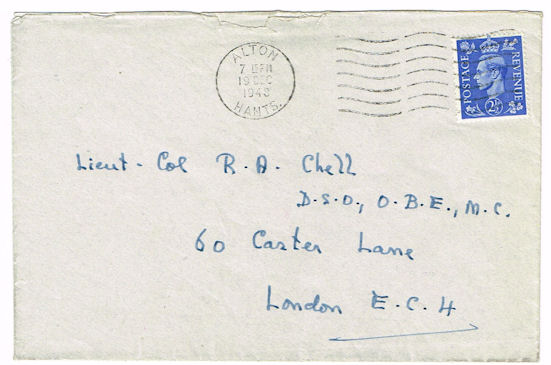 ALTON
7 PM
19 DEC
1943
HANTS.
POSTAGE
REVENUE
2½
Lieut - Col R. A. Chell
D.S.O., O.B.E., M.C.
60 Carter Lane
London E.C.4